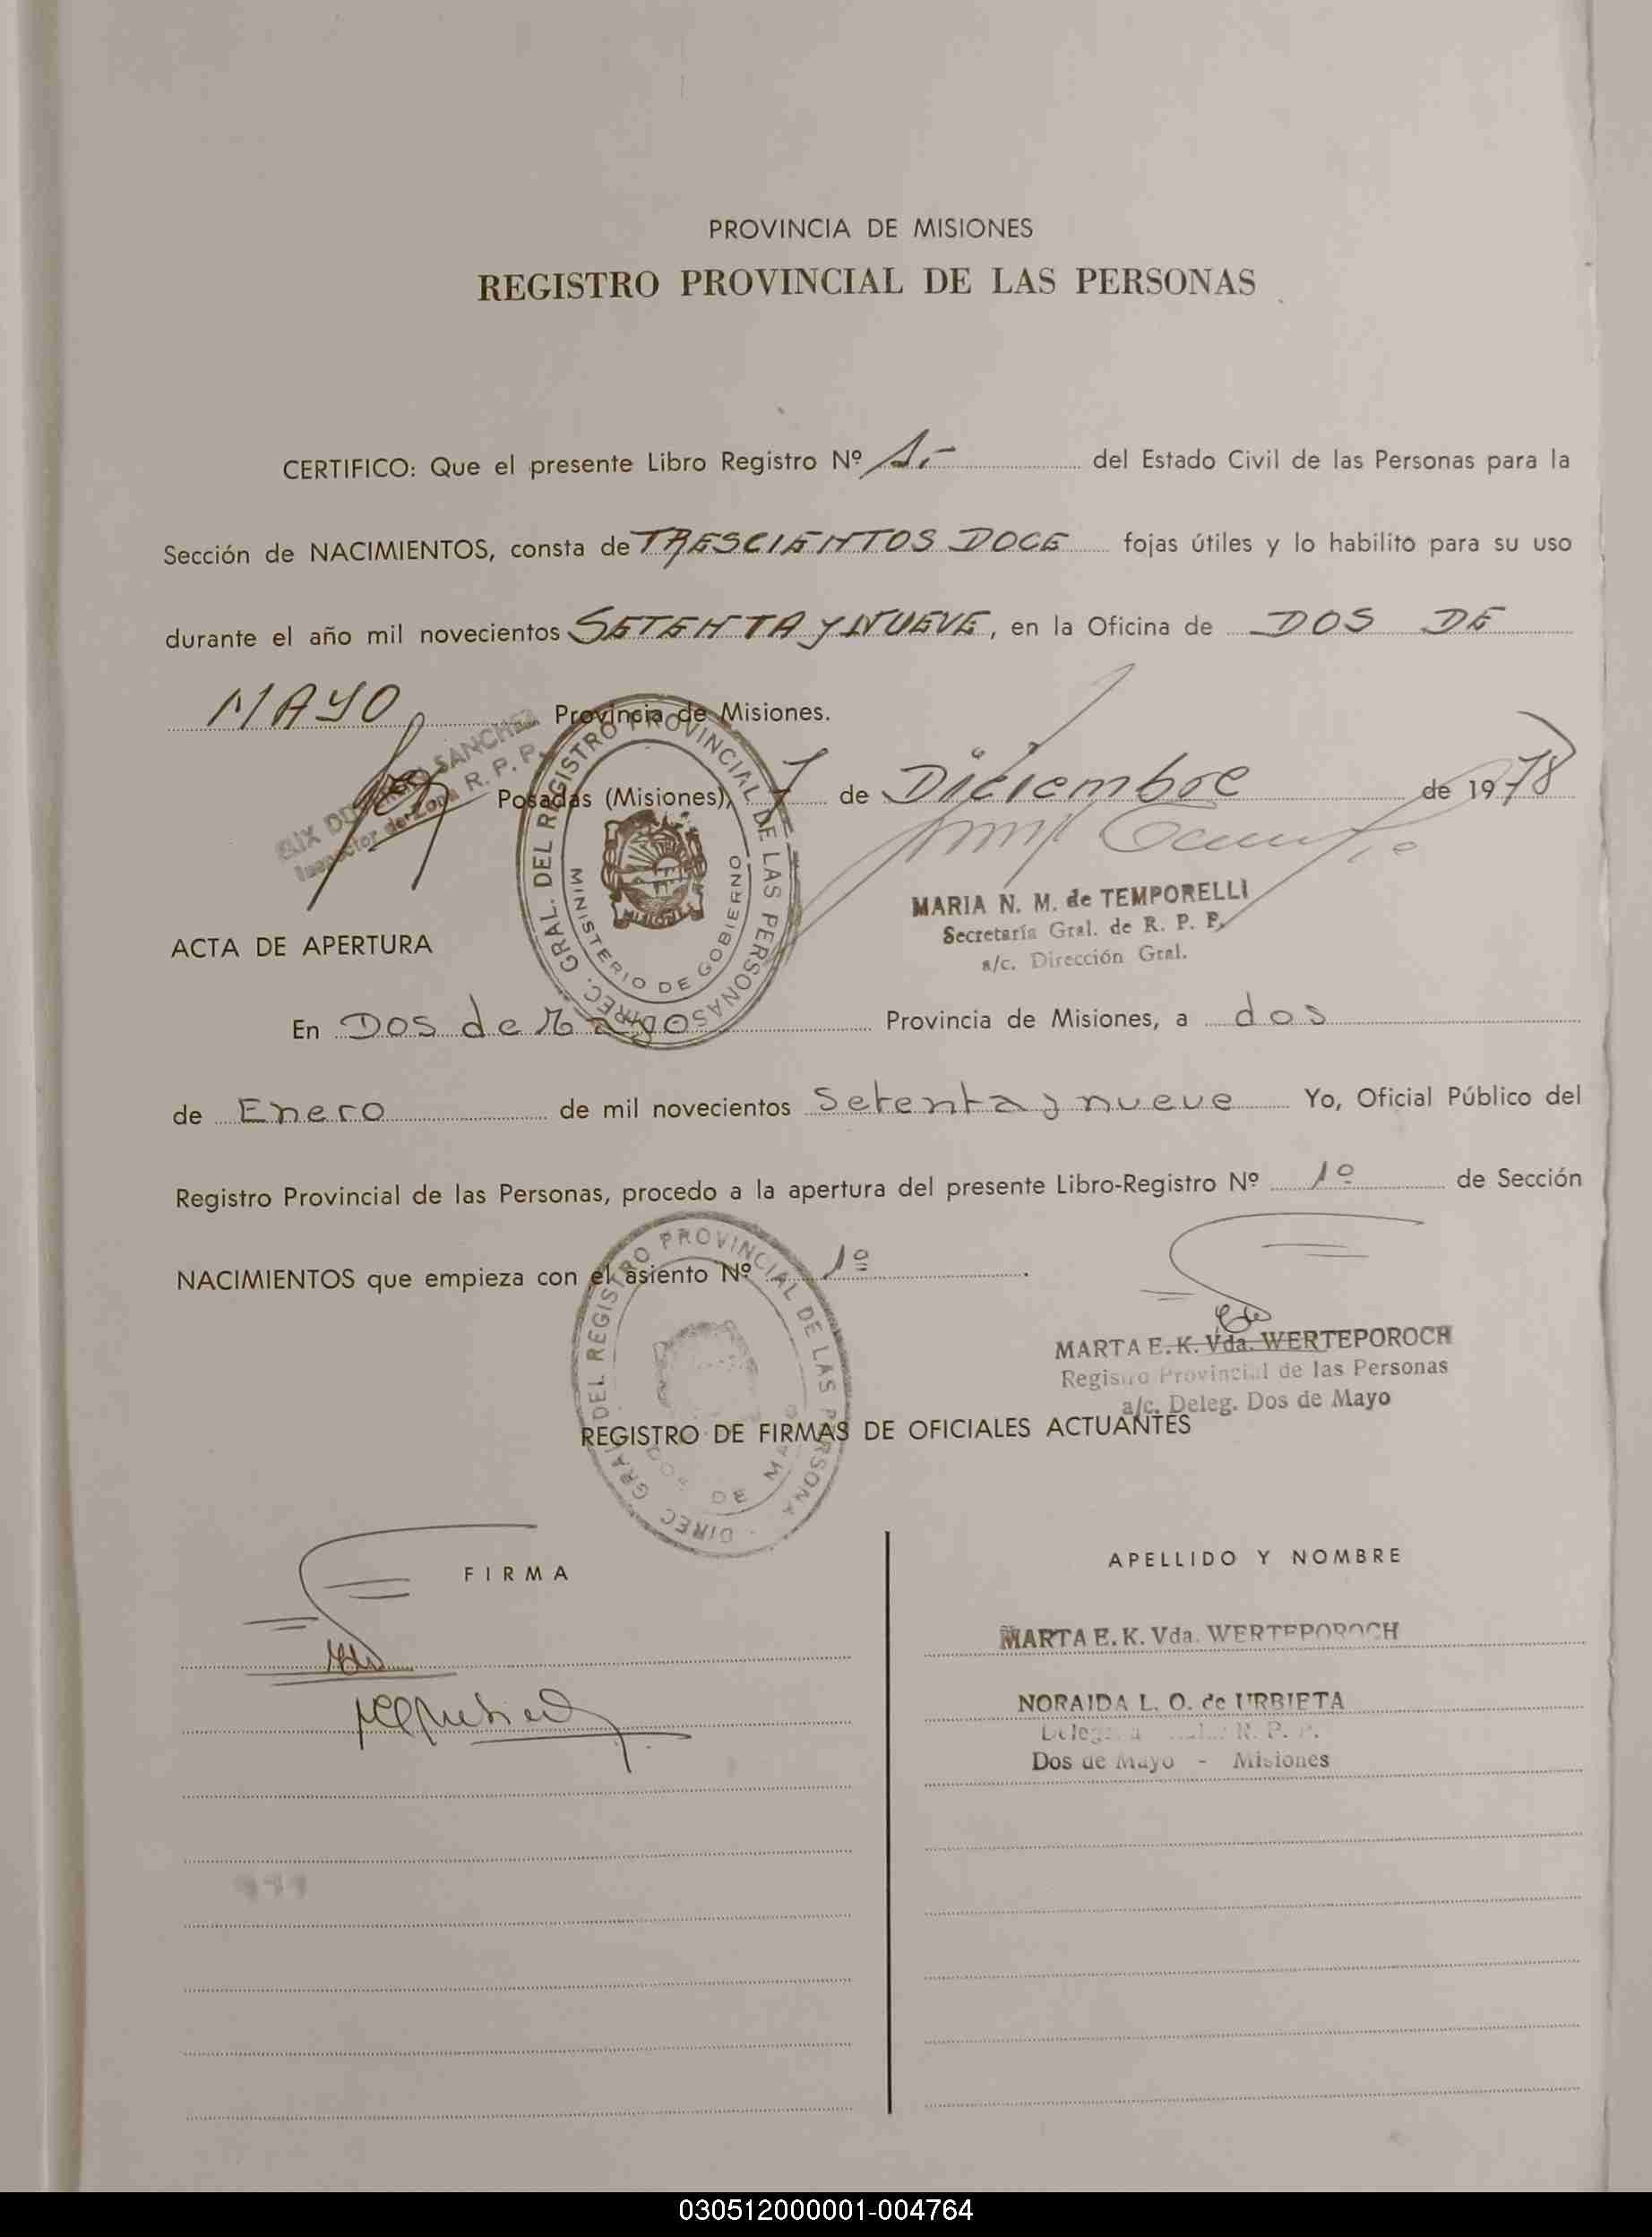 PROVINCIA DE MISIONES
REGISTRO PROVINCIAL DE LAS PERSONAS
CERTIFICO: Que el presente Libro Registro Nº 1.- del Estado Civil de las Personas para la
Sección de NACIMIENTOS, consta de TRESCIENTOS DOCE fojas útiles y lo habilito para su uso
durante el año mil novecientos SETENTA Y NUEVE, en la Oficina de DOS DE
MAYO Provincia de Misiones.
SANCHEZ
Inspector de Zona R. P. P.
Posadas (Misiones), 7 de Diciembre de 1978
DIREC. GRAL. DEL REGISTRO PROVINCIAL DE LAS PERSONAS
MINISTERIO DE GOBIERNO
MISIONES
MARIA N. M. de TEMPORELLI
Secretaría Gral. de R. P. P.
a/c. Dirección Gral.
ACTA DE APERTURA
En Dos de Mayo Provincia de Misiones, a dos
de Enero de mil novecientos Setenta y nueve Yo, Oficial Público del
Registro Provincial de las Personas, procedo a la apertura del presente Libro-Registro Nº 1º de Sección
NACIMIENTOS que empieza con el asiento Nº 1º.
MARTA E. K. Vda. WERTEPOROCH
Registro Provincial de las Personas
a/c. Deleg. Dos de Mayo
DIREC. GRAL. DEL REGISTRO PROVINCIAL DE LAS PERSONA
DOS DE MA
REGISTRO DE FIRMAS DE OFICIALES ACTUANTES
FIRMA
APELLIDO Y NOMBRE
MARTA E. K. Vda. WERTEPOROCH
NORAIDA L. O. de URBIETA
R. P. P.
Dos de Mayo - Misiones
030512000001-004764